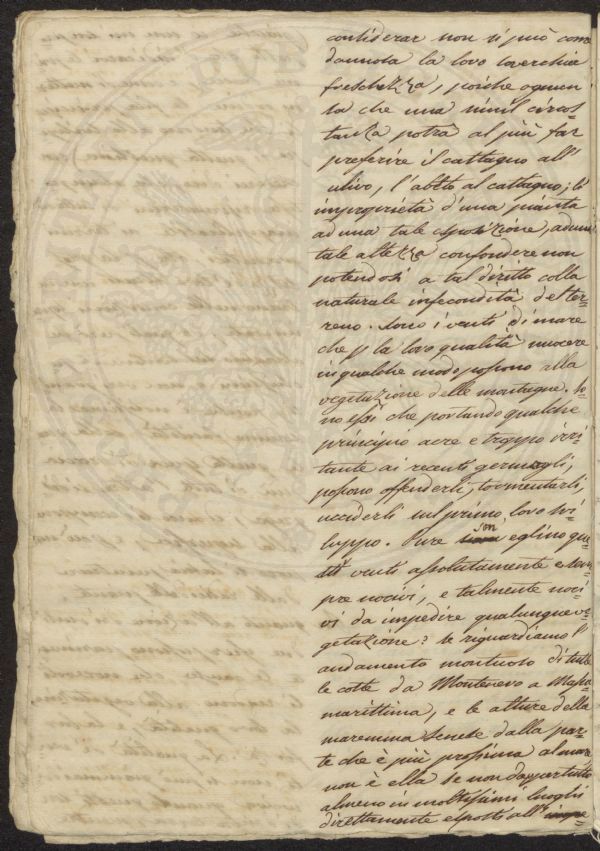 considerar non si può come
dannosa la loro soverchia
freschezza, poiche ognun
sa che una simil circos=
tanza potrà al più far
preferire il castagno all'
ulivo, l'abeto al castagno; l'
improprietà d'una pianta
ad una tale esposizione, ad una
tale altezza confondere non
potendosi a tal diritto colla
naturale infecondità del ter=
reno. Sono i venti di mare
che p la loro qualità nuocere
in qualche modo possono alla
vegetazione delle montagne. So=
no essi che portando qualche
principio acre e troppo irri
tante ai recenti germogli,
possono offenderli, tormentarli,
ucciderli sul primo loro svi=
luppo. Pure son eglino que=
sti venti assolutamente e sem=
pre nocivi, e talmente noci=
vi da impedire qualunque ve=
getazione? Se riguardiamo l'
andamento montuoso di tutte
le coste da Montenero a Massa
marittima, e le alture della
maremma senese dalla par=
te che è più prossima al mare,
non è ella se non dappertutto
almeno in moltissimi luoghi
direttamente esposti all'